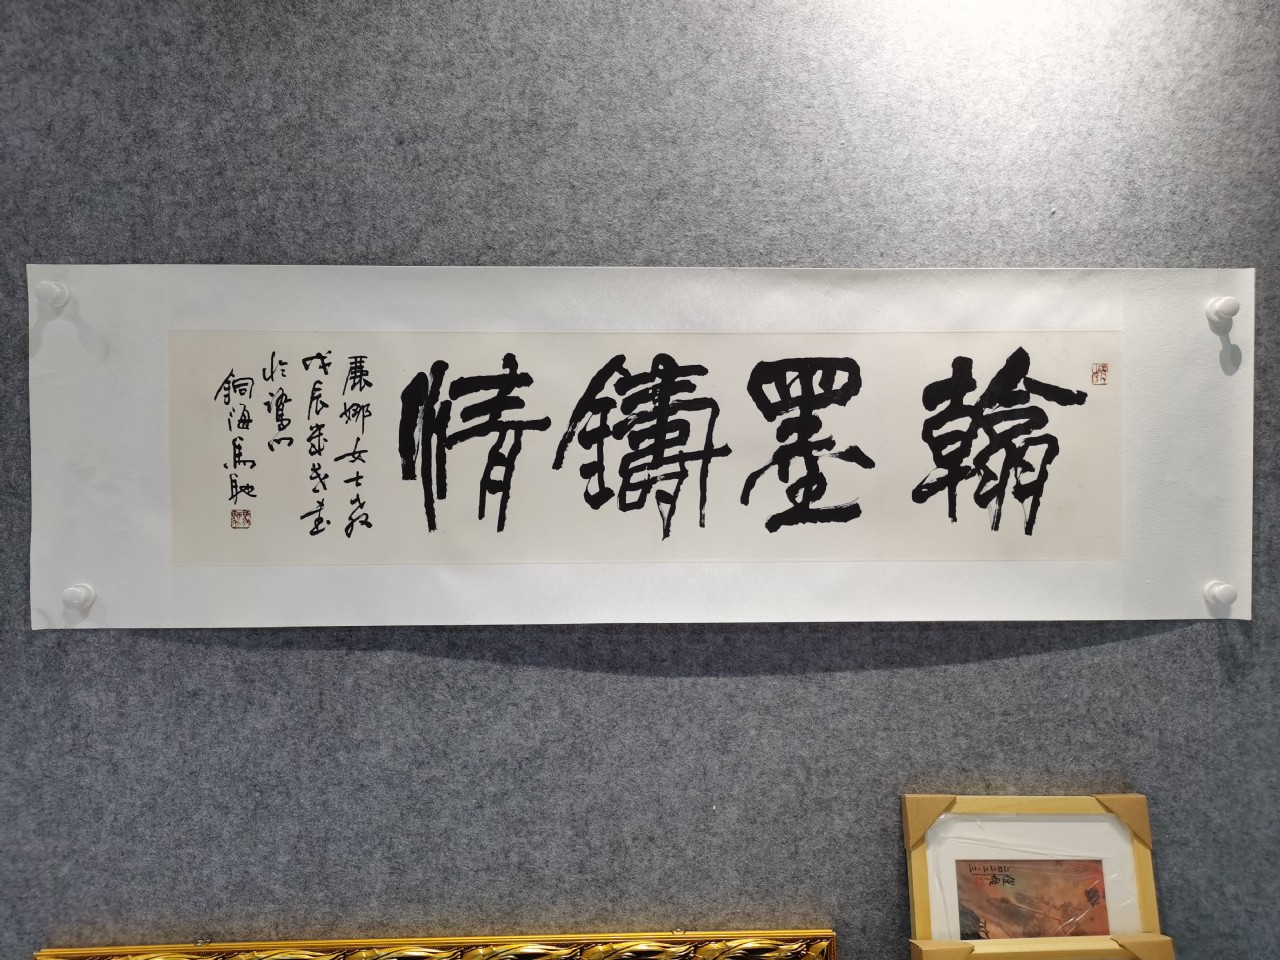 翰墨鑄情
麗娜女士教
戊辰歲冬書
於鷺門
銅海馬馳